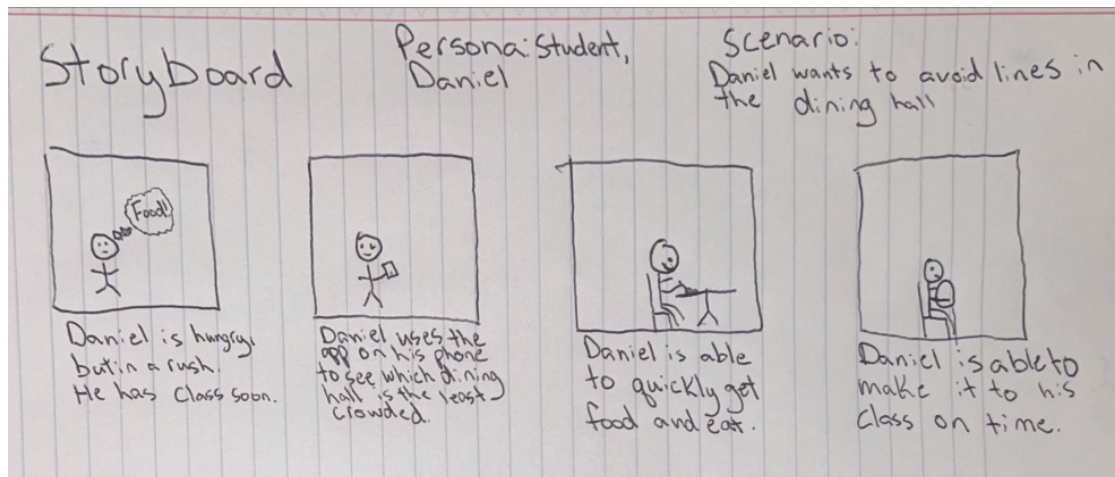 Storyboard
Persona: Student,
Daniel
Scenario:
Daniel wants to avoid lines in
the dining hall
Food!
Daniel is hungry,
but in a rush.
He has class soon.
Daniel uses the
app on his phone
to see which dining
hall is the least
crowded.
Daniel is able
to quickly get
food and eat.
Daniel is able to
make it to his
class on time.